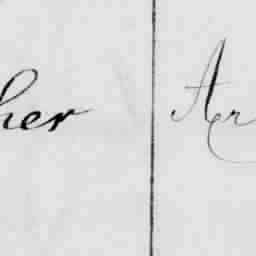 her Ar